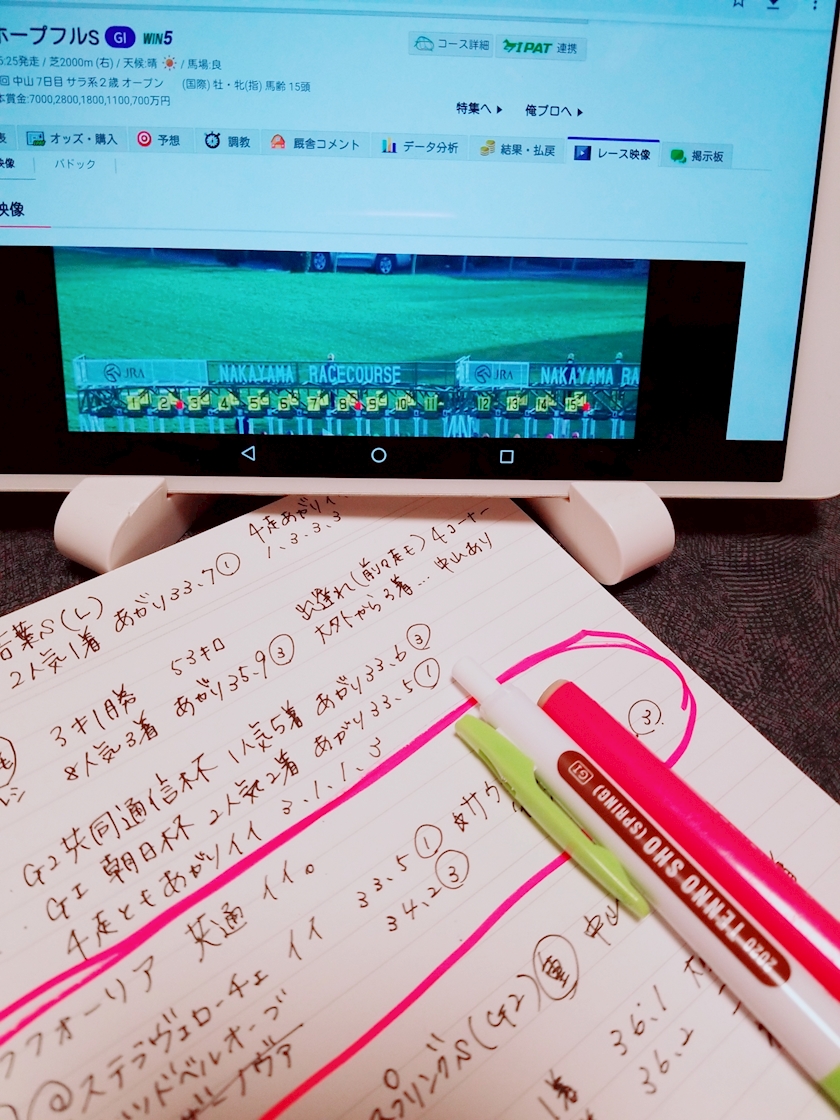 ホープフルS GI WIN5
コース詳細
IPAT 連携
5:25発走 / 芝2000m (右) / 天候:晴 / 馬場:良
回 中山 7日目 サラ系2歳 オープン (国際) 牡・牝(指) 馬齢 15頭
本賞金:7000,2800,1800,1100,700万円
特集へ
俺プロへ
表
オッズ・購入
予想
調教
厩舎コメント
データ分析
結果・払戻
レース映像
掲示板
映像
パドック
映像
JRA NAKAYAMA RACECOURSE JRA NAKAYAMA RA
1 2 3 4 5 6 7 8 9 10 11 12 13 14 15
4走あがりイ
1、3、3、3
言葉S(L)
2人気1着 あがり33.7①
出遅れ(前走も) 4コーナー
大外から3着… 中山あり
3キ1勝 53キロ
8人気3着 あがり35.9③
G2共同通信杯 1人気5着 あがり33.6③
GI 朝日杯 2人気2着 あがり33.5①
4走ともあがりイイ 3、1、1、3
③
フォーリア 共通 イイ。
イイ 33.5①
34.2③
@ステラヴェローチェ
ッドベルオーブ
プリングS(G2)重 中山
1着 36.1
36.2
2020 TENNO SHO (SPRING) GI